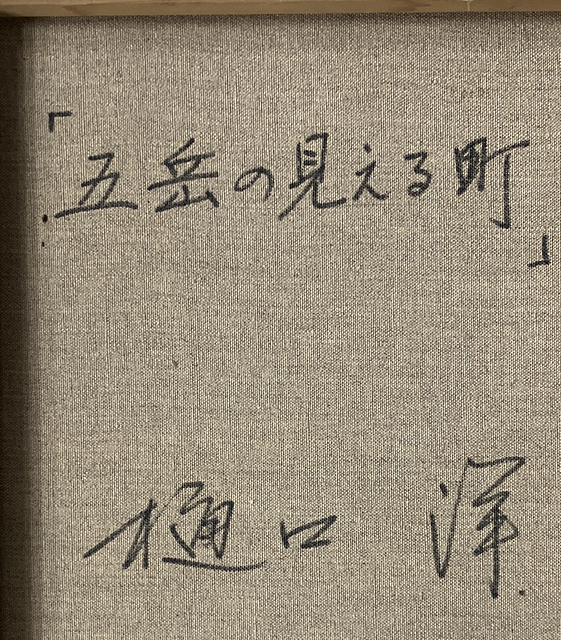 「五岳の見える町」
樋口 洋